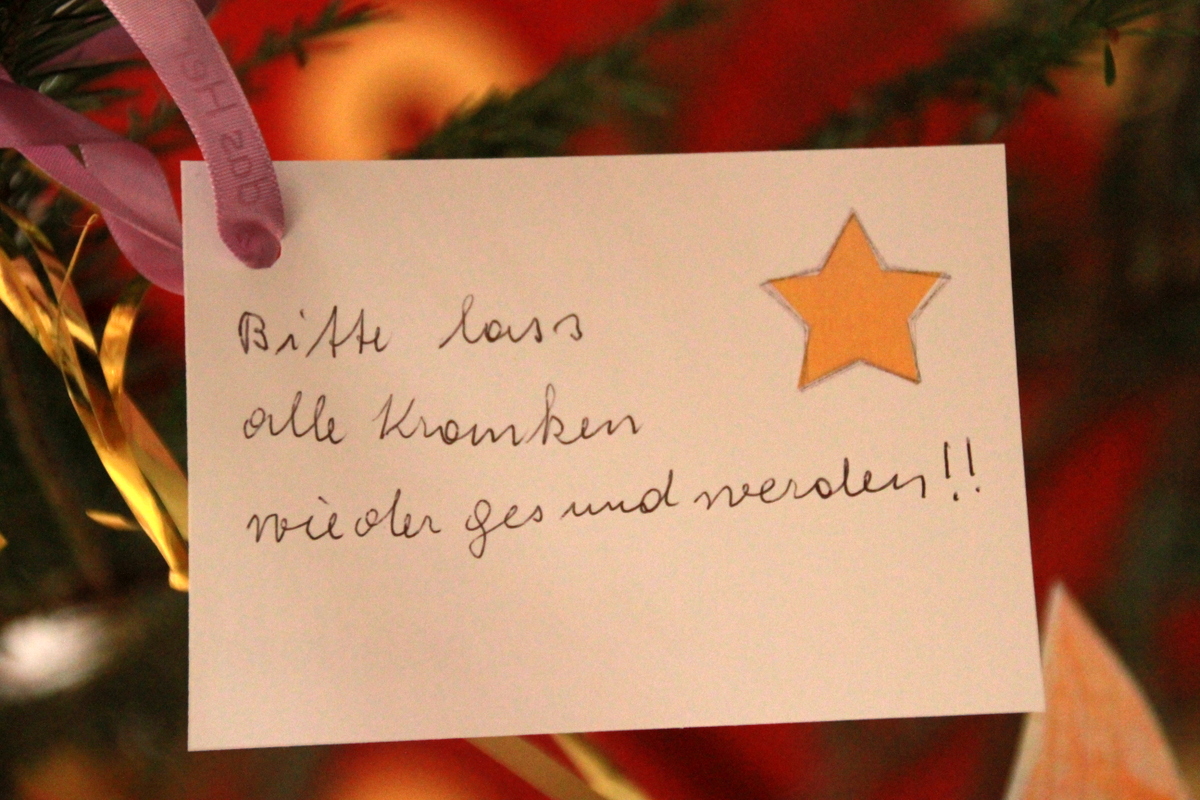 das Her
Bitte lass
alle Kranken
wieder gesund werden!!